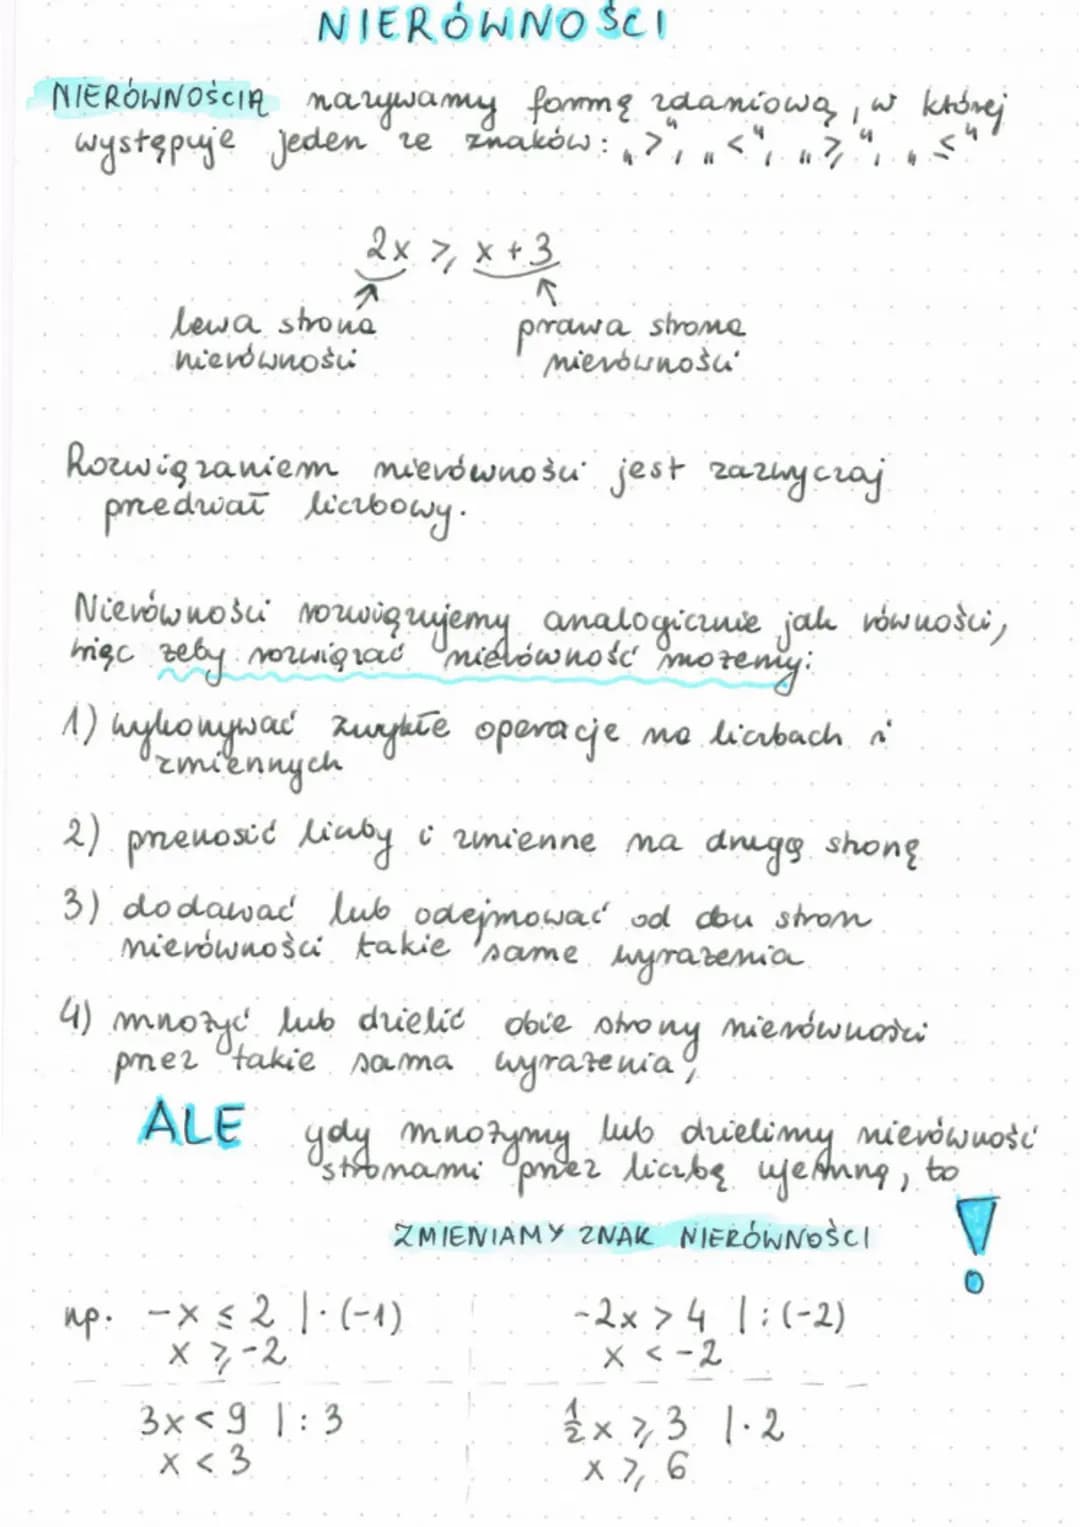 NIERÓWNOŚCI
NIERÓWNOŚCIĄ nazywamy formę zdaniową, w której
występuje jeden ze znaków: „>", „<", „⩾", „≤"
2x ⩾ x + 3
lewa strona prawa strona
nierówności nierówności
Rozwiązaniem nierówności jest zazwyczaj
przedział liczbowy.
Nierówności rozwiązujemy analogicznie jak równości,
więc żeby rozwiązać nierówność możemy:
1) wykonywać zwykłe operacje na liczbach i
zmiennych
2) przenosić liczby i zmienne na drugą stronę
3) dodawać lub odejmować od obu stron
nierówności takie same wyrażenia
4) mnożyć lub dzielić obie strony nierówności
przez takie sama wyrażenia,
ALE gdy mnożymy lub dzielimy nierówność
stronami przez liczbę ujemną, to
ZMIENIAMY ZNAK NIERÓWNOŚCI !
np. -x ≤ 2 |·(-1) -2x > 4 |:(-2)
x ⩾ -2 x < -2
3x < 9 |:3 ½x ⩾ 3 |·2
x < 3 x ⩾ 6